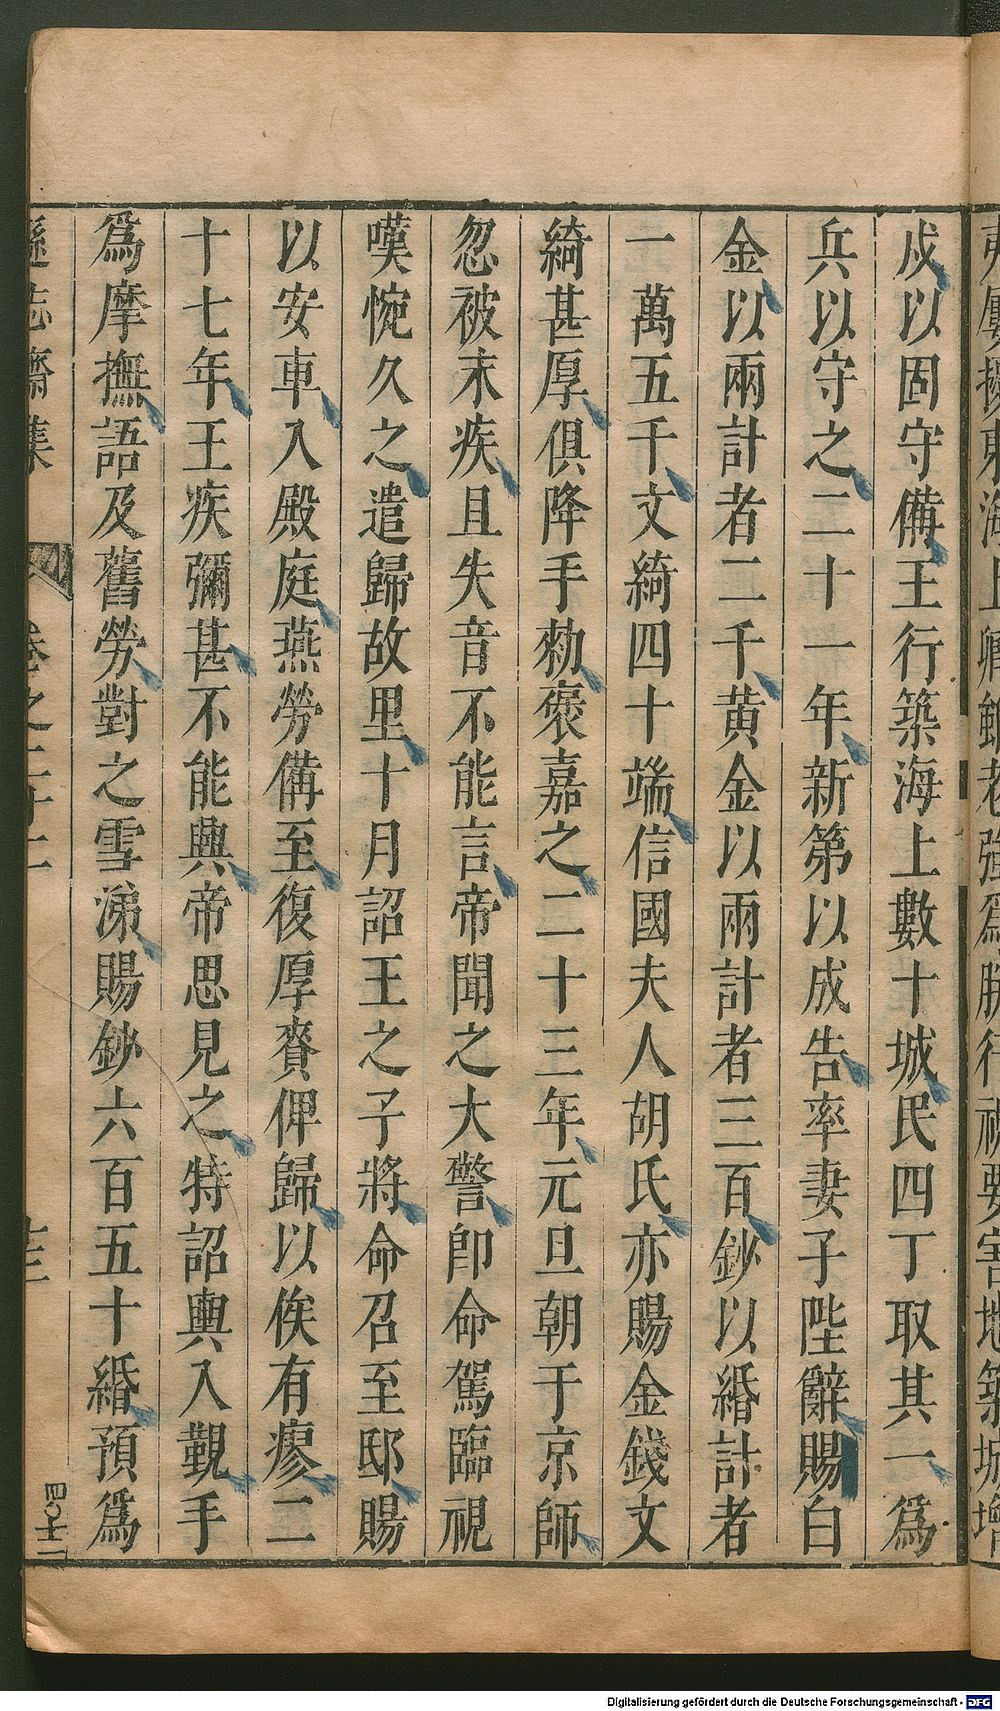 戍以固守備王行築海上數十城民四丁取其一爲
兵以守之二十一年新第以成告率妻子陛辭賜白
金以兩計者二千黄金以兩計者三百鈔以緡計者
一萬五千文綺四十端信國夫人胡氏亦賜金錢文
綺甚厚俱降手勑褒嘉之二十三年元旦朝于京師
忽被末疾且失音不能言帝聞之大警即命駕臨視
嘆惋久之遣歸故里十月詔王之子將命召至邸賜
以安車入殿庭燕勞備至復厚賚俾歸以俟有瘳二
十七年王疾彌甚不能興帝思見之特詔輿入覲手
爲摩撫語及舊勞對之雪涕賜鈔六百五十緡預爲
遜志齋集 卷之二十二
四〇十二
Digitalisierung gefördert durch die Deutsche Forschungsgemeinschaft - DFG